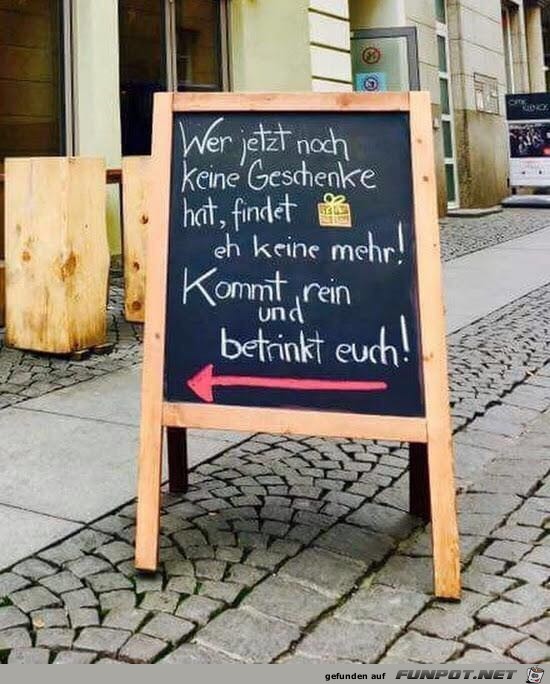 Wer jetzt noch
keine Geschenke
hat, findet
eh keine mehr!
Kommt rein
und
betrinkt euch!
OPTIK
gefunden auf FUNPOT.NET